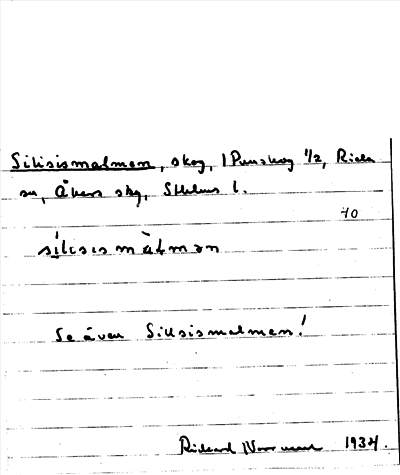 Silisismalmen, skog, 1 Punskog 1/2, Riala
sn, Åkers skg, Sthlms l.
70
sílisismàlmən
Se även Sillsismalmen!
Rickard 1934.